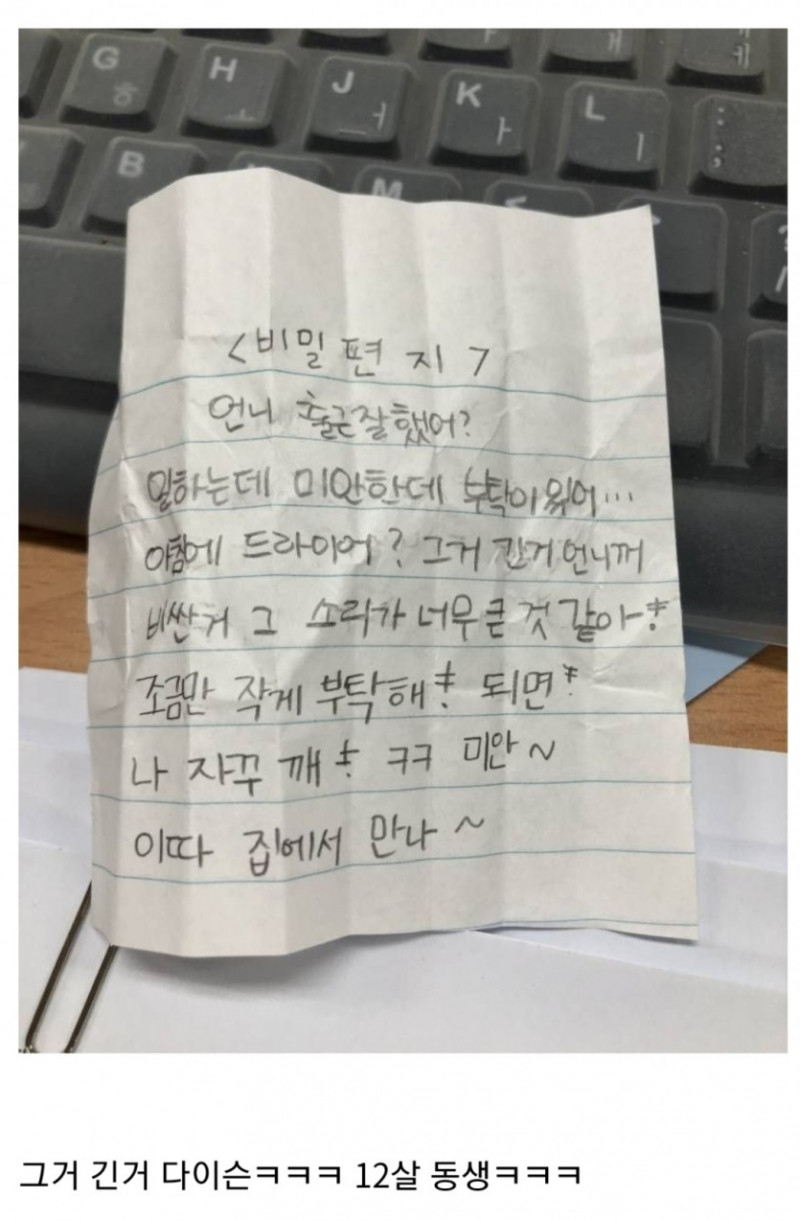 G ㅎ
H ㅗ
J ㅓ
K ㅏ
L ㅣ
;
:
B
M
?
/
<비밀 편지>
언니 출근잘했어?
일하는데 미안한데 부탁이 있어...
아침에 드라이어? 그거 긴거 언니꺼
비싼거 그 소리가 너무 큰 것 같아ㅎ
조금만 작게 부탁해ㅎ 되면ㅎ
나 자꾸 깨ㅎ ㅋㅋ 미안~
이따 집에서 만나~
그거 긴거 다이슨ㅋㅋㅋ 12살 동생ㅋㅋㅋ